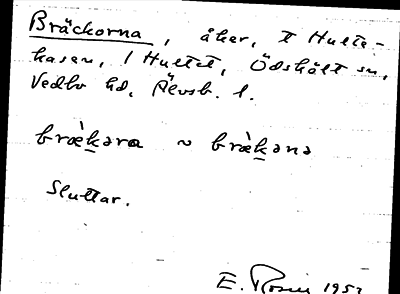 Bräckorna, åker, t Hulte-
kasen, 1 Hultet, Ödskölt sn,
Vedbo hd, Älvsb. l.
bræ̀kara ~ bræ̀kana
Sluttar.
E. Rosin 1953